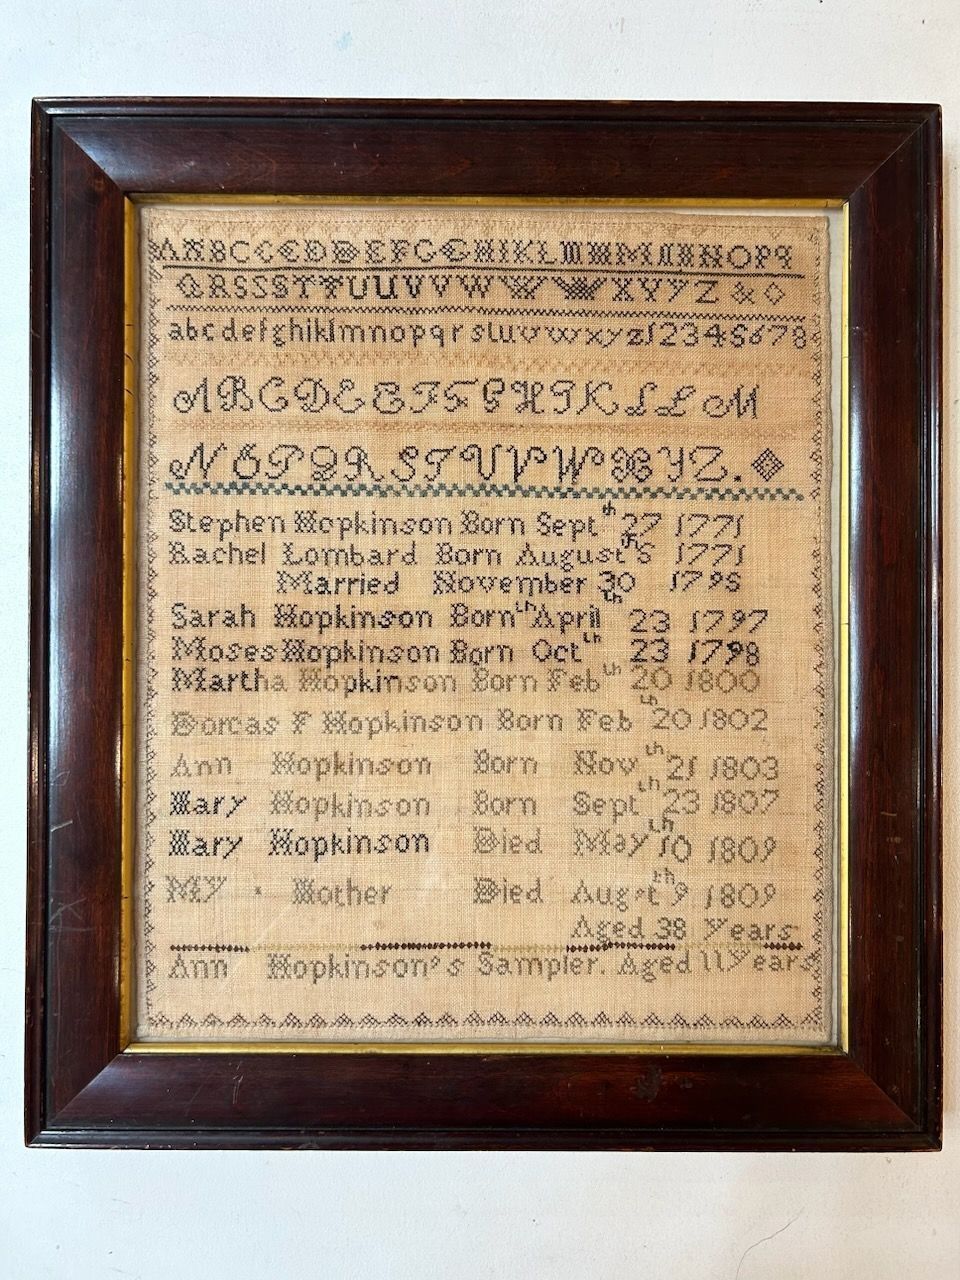 A A B C C C D D E F G G H I K L M N M N N N O P q
Q R S S S T T U U V V W W W X Y Y Z & ◇
a b c d e f g h i k l m n o p q r s t u v w x y z 1 2 3 4 5 6 7 8
A B C D E E F F G H I K L L M
N O P Q R S T U V W X Y Z . ◈
Stephen Hopkinson Born Sept th 27 1771
Rachel Lombard Born August th 6 1771
Married November 30 1795
Sarah Hopkinson Born April th 23 1797
Moses Hopkinson Born Oct th 23 1798
Martha Hopkinson Born Feb th 20 1800
Dorcas F Hopkinson Born Feb th 20 1802
Ann Hopkinson Born Nov th 21 1803
Mary Hopkinson Born Sept th 23 1807
Mary Hopkinson Died May th 10 1809
MY . Mother Died Augst th 9 1809
Aged 38 Years
Ann Hopkinson's Sampler. Aged 11 Years